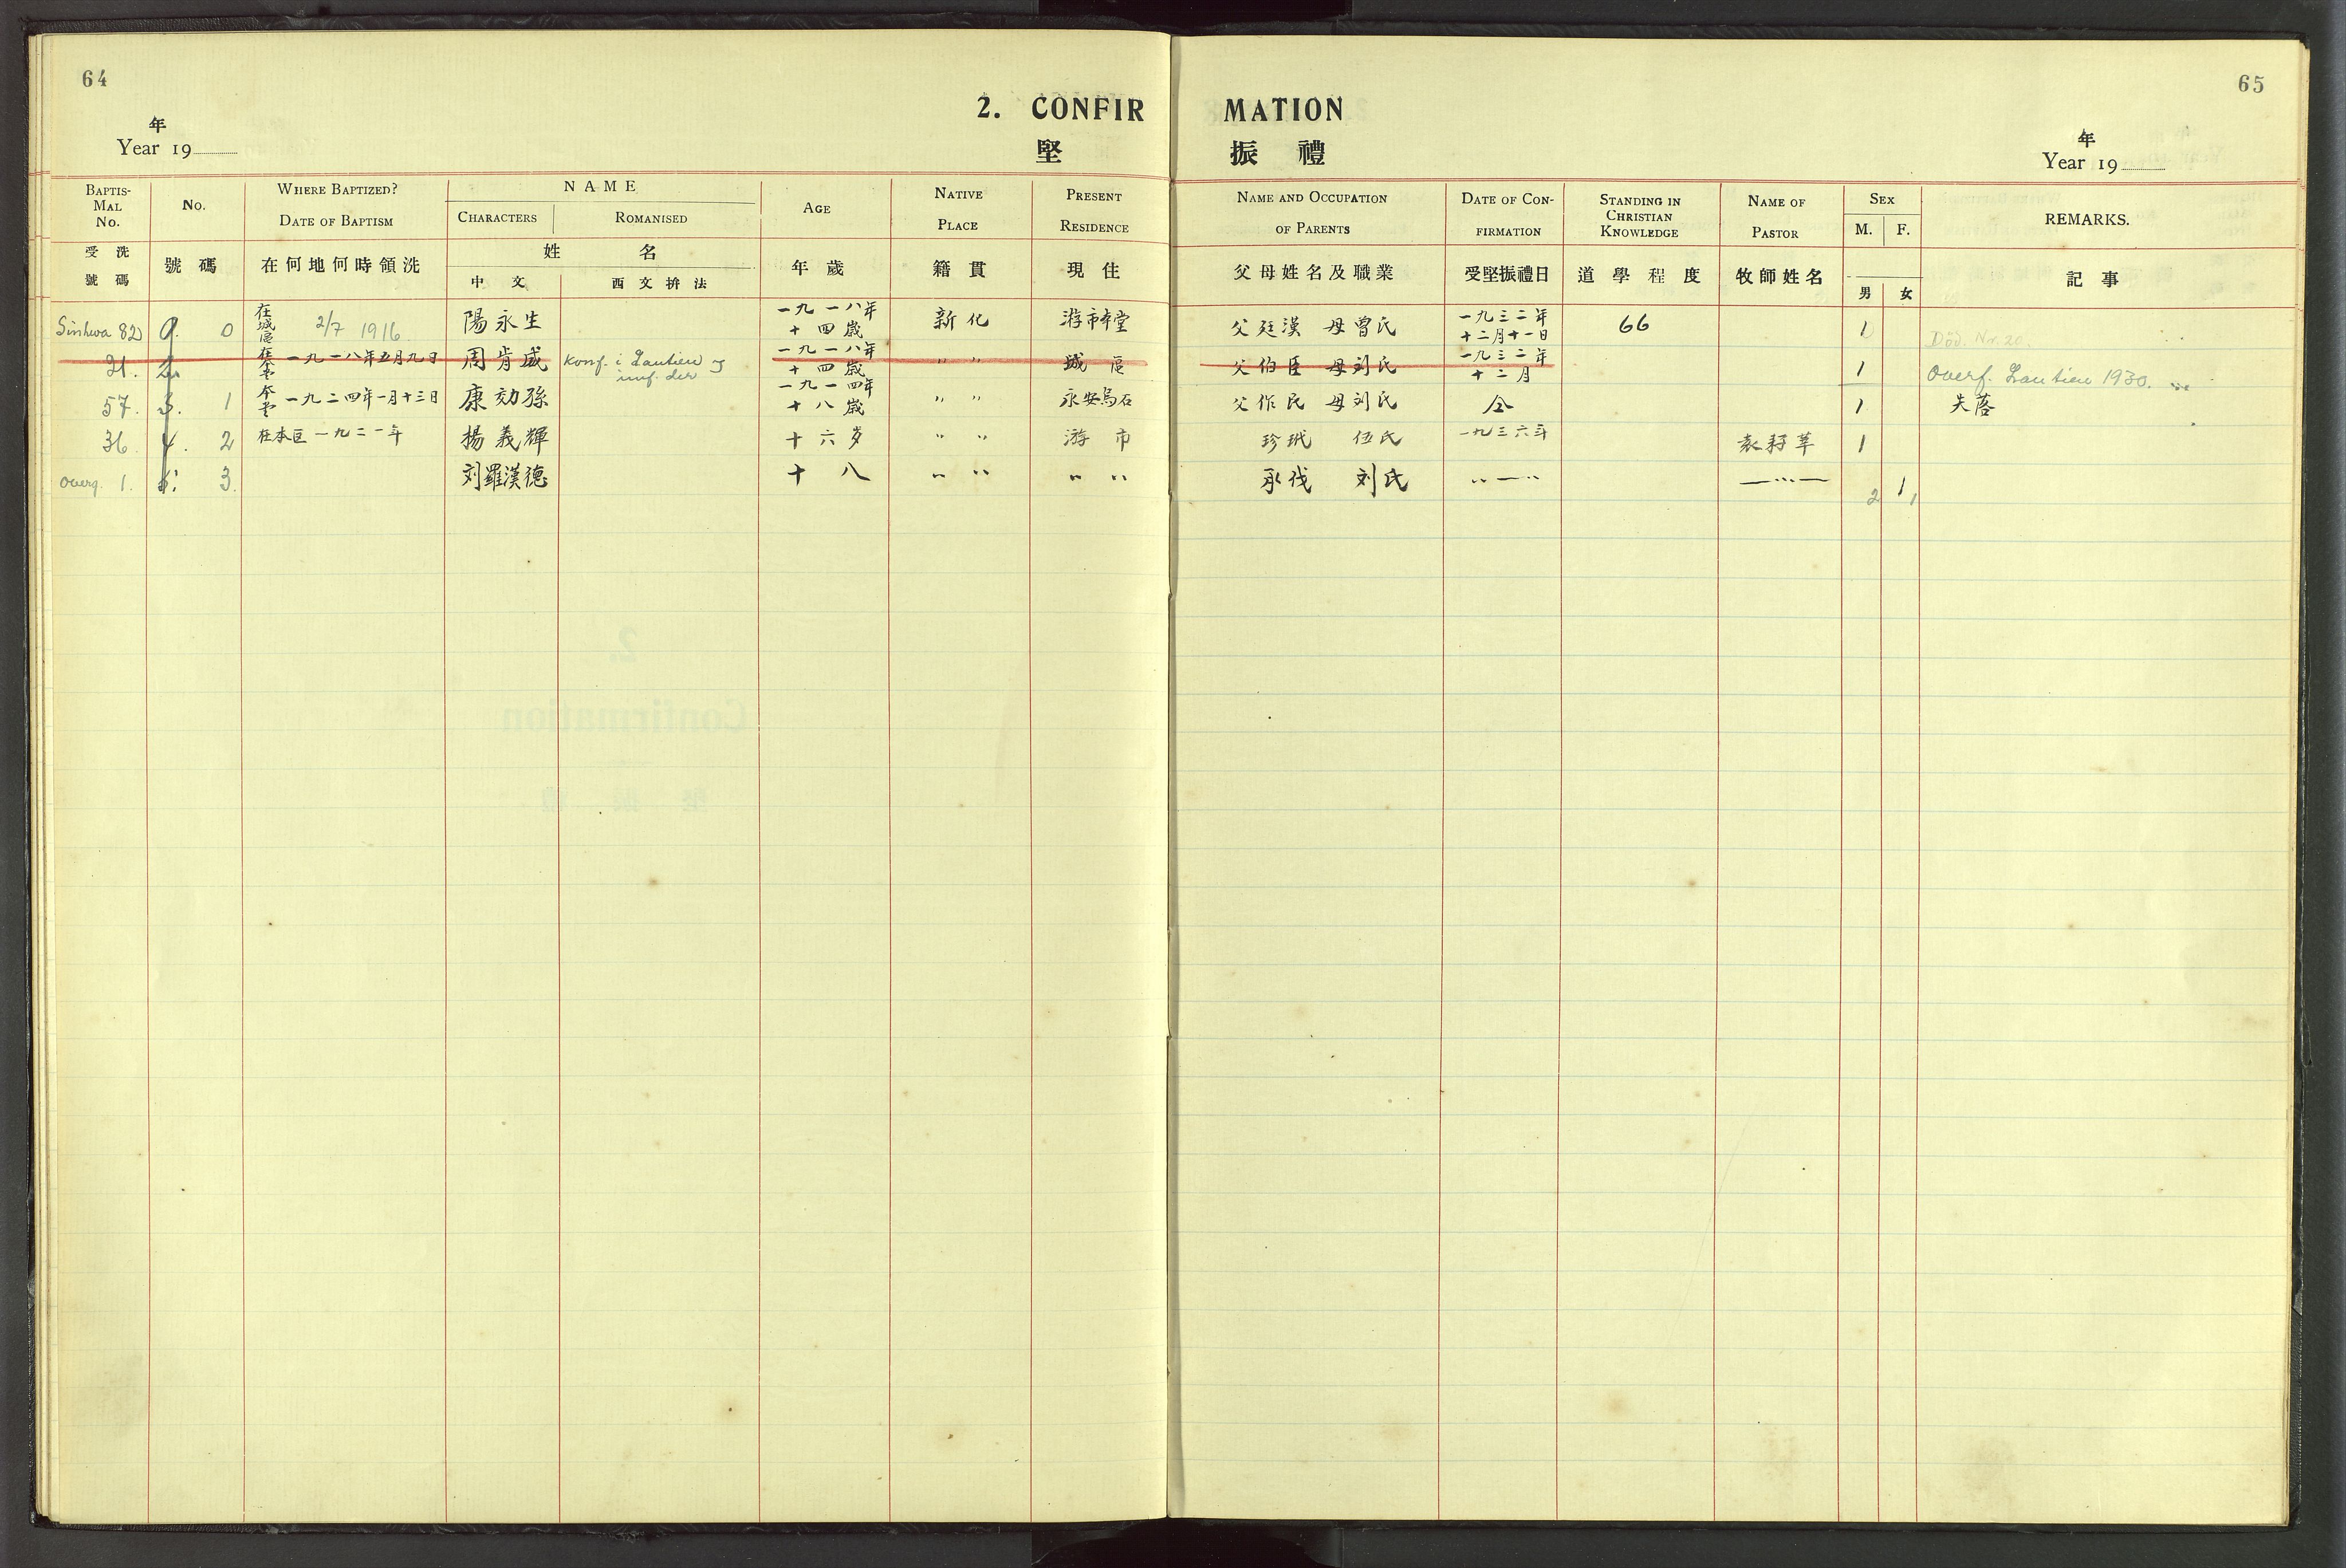 64
年
Year 19
2. CONFIR
堅
BAPTIS-MAL No.
No.
WHERE BAPTIZED?
DATE OF BAPTISM
NAME
CHARACTERS
ROMANISED
AGE
NATIVE PLACE
PRESENT RESIDENCE
受洗號碼
號碼
在何地何時領洗
姓名
中文
西文拚法
年歲
籍貫
現住
Sinhwa 82 0 在城區 2/7 1916 陽永生 一九一八年 十四歲 新化 游市本堂
21. 2. 在本堂 一九一八年五月九日 周肯盛 Konf. i Lantien 一九一八年 十四歲 〃 〃 城區
57. 3. 1 本堂 一九二四年一月十三日 康効孫 一九一四年 十八歲 〃 〃 永安烏石
36. 4. 2 在本區一九二一年 楊義輝 十六岁 〃 〃 游市
overf. 1. 5. 3. 刘羅漢德 十八 〃 〃 〃 〃
65
MATION
振禮
年
Year 19
NAME AND OCCUPATION OF PARENTS
DATE OF CON-FIRMATION
STANDING IN CHRISTIAN KNOWLEDGE
NAME OF PASTOR
SEX
M. F.
REMARKS.
父母姓名及職業
受堅振禮日
道學程度
牧師姓名
男 女
記事
父廷漢 母曾氏 一九三二年 十二月十一日 66 1 Död. Nr. 20.
父伯臣 母刘氏 一九三二年 十二月 1 Overf. Lantien 1930.
父作民 母刘氏 仝 1 失落
伍氏 一九三六年 1
承伐 刘氏 〃 — 〃 — 〃 — 1
2 1